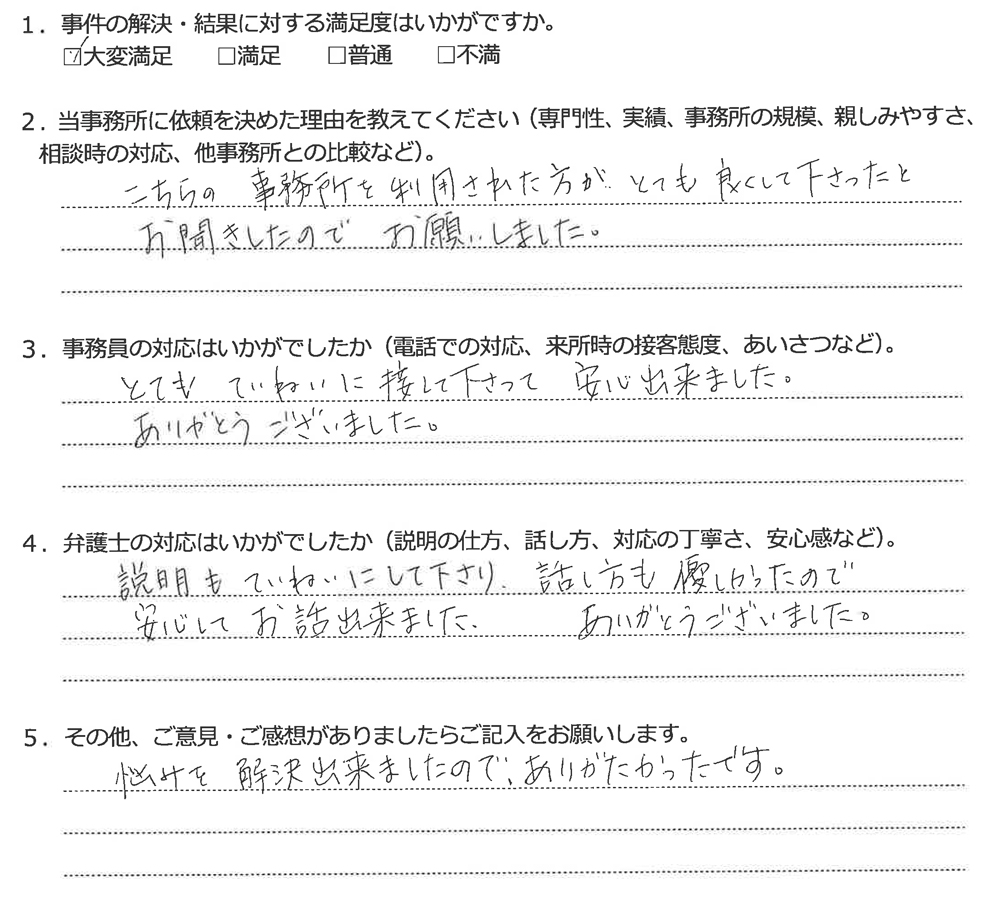 1．事件の解決・結果に対する満足度はいかがですか。
☑大変満足 □満足 □普通 □不満
2．当事務所に依頼を決めた理由を教えてください（専門性、実績、事務所の規模、親しみやすさ、
相談時の対応、他事務所との比較など）。
こちらの 事務所を利用された方が とても 良くして下さったと
お聞きしたので お願いしました。
3．事務員の対応はいかがでしたか（電話での対応、来所時の接客態度、あいさつなど）。
とても ていねいに接して下さって 安心出来ました。
ありがとうございました。
4．弁護士の対応はいかがでしたか（説明の仕方、話し方、対応の丁寧さ、安心感など）。
説明も ていねいにして下さり、話し方も優しかったので
安心して お話出来ました、 ありがとうございました。
5．その他、ご意見・ご感想がありましたらご記入をお願いします。
悩みを 解決出来ましたので、ありがたかったです。